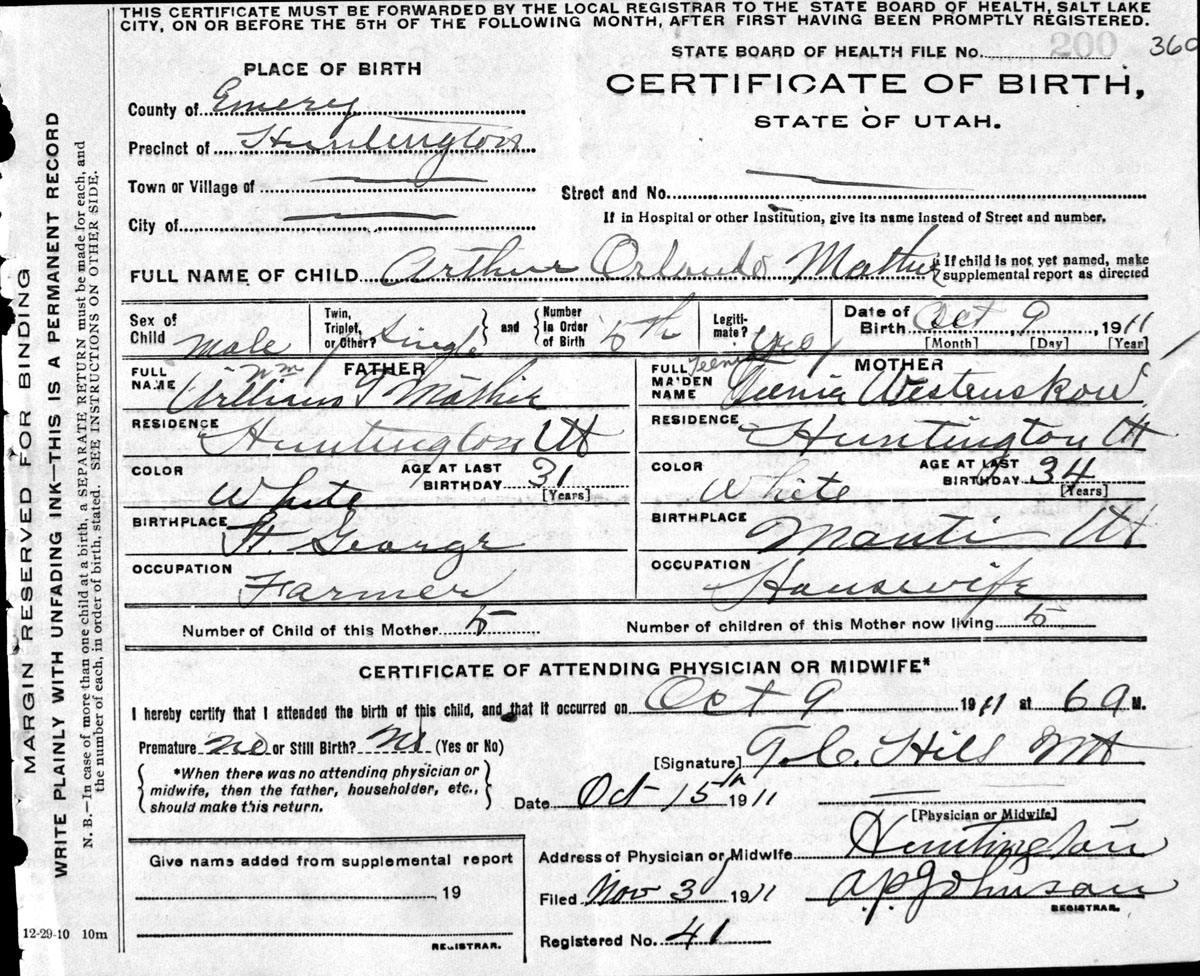 THIS CERTIFICATE MUST BE FORWARDED BY THE LOCAL REGISTRAR TO THE STATE BOARD OF HEALTH, SALT LAKE
CITY, ON OR BEFORE THE 5TH OF THE FOLLOWING MONTH, AFTER FIRST HAVING BEEN PROMPTLY REGISTERED.
STATE BOARD OF HEALTH FILE No. 200 360
PLACE OF BIRTH
CERTIFICATE OF BIRTH,
STATE OF UTAH.
County of Emery
Precinct of Huntington
Town or Village of
Street and No.
City of
If in Hospital or other Institution, give its name instead of Street and number.
FULL NAME OF CHILD Arthur Orlando Mathie { If child is not yet named, make
supplemental report as directed
Sex of Child Male
Twin, Triplet, or Other? Single } and { Number in Order of Birth 5th
Legitimate? Yes
Date of Birth Oct 9, 1911
[Month] [Day] [Year]
FATHER
FULL NAME Wm William F Mathie
MOTHER
FULL MAIDEN NAME Teenie Teenie Westenskow
RESIDENCE Huntington Ut
RESIDENCE Huntington Ut
COLOR White
AGE AT LAST BIRTHDAY 31 [Years]
COLOR White
AGE AT LAST BIRTHDAY 34 [Years]
BIRTHPLACE St. George
BIRTHPLACE Manti Ut
OCCUPATION Farmer
OCCUPATION Housewife
Number of Child of this Mother 5
Number of children of this Mother now living 5
CERTIFICATE OF ATTENDING PHYSICIAN OR MIDWIFE*
I hereby certify that I attended the birth of this child, and that it occurred on Oct 9 1911 at 6 a M.
Premature no or Still Birth? No (Yes or No)
[Signature] T. C. Hill
{ *When there was no attending physician or
midwife, then the father, householder, etc.,
should make this return. }
Date Oct 15th 1911
[Physician or Midwife]
Give name added from supplemental report
, 19
REGISTRAR.
Address of Physician or Midwife Huntington
Filed Nov 3 1911 A. P. Johnson
REGISTRAR.
Registered No. 41
12-29-10 10m
MARGIN RESERVED FOR BINDING
WRITE PLAINLY WITH UNFADING INK—THIS IS A PERMANENT RECORD
N. B.—In case of more than one child at a birth, a SEPARATE RETURN must be made for each, and
the number of each, in order of birth, stated. SEE INSTRUCTIONS ON OTHER SIDE.